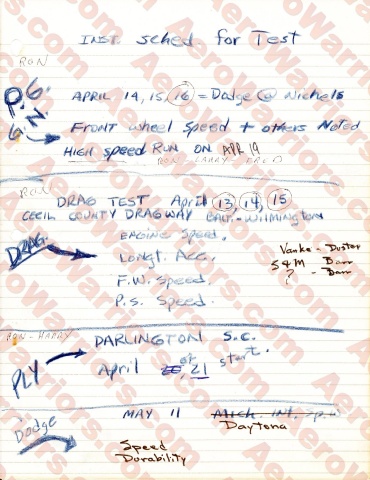 INST. sched for Test
RON
O.G.
P.Z.
G.
APRIL 14, 15, 16 = Dodge @ Nichels
FRONT wheel speed + others Noted
HIGH speed RUN ON APR 19
RON - HARRY - FRED
RON
DRAG TEST April 13, 14, 15
CECIL COUNTY DRAGWAY BALT. - WILMINGTON
DRAG.
ENGINE Speed.
Longt. Acc.
F.W. Speed.
P.S. Speed.
Vanke - Duster
S&M - Barr
? - Barr
RON - HARRY
PLY
DARLINGTON S.C.
April 21 start.
or
Dodge
MAY 11 Mich. Int. Spw
Daytona
Speed
Durability
AeroWarriors.com